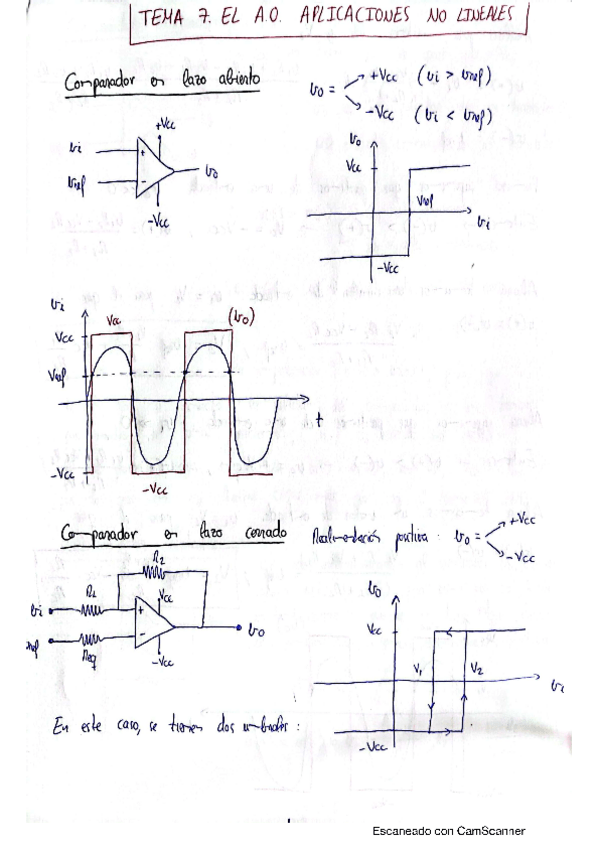 TEMA 7. EL A.O. APLICACIONES NO LINEALES
Comparador en lazo abierto
vo = +Vcc (vi > vref)
-Vcc (vi < vref)
+Vcc
vi
+
vo
Vref
-
-Vcc
vo
Vcc
Vref
vi
-Vcc
vi
Vcc
(vo)
Vcc
Vref
t
-Vcc
-Vcc
Comparador en lazo cerrado
Realimentación positiva: vo = +Vcc
-Vcc
R2
R1
Vcc
vi
+
vo
-
vref
Req
-Vcc
vo
Vcc
V1
V2
vi
-Vcc
En este caso, se tienen dos umbrales:
Escaneado con CamScanner